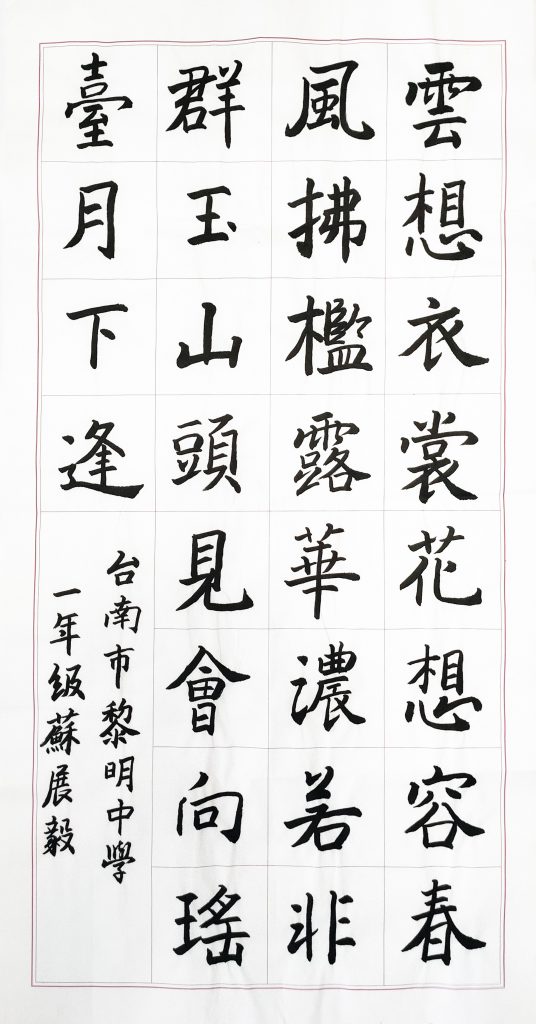 雲想衣裳花想容春
風拂檻露華濃若非
群玉山頭見會向瑤
臺月下逢
台南市黎明中學
一年級蘇展毅